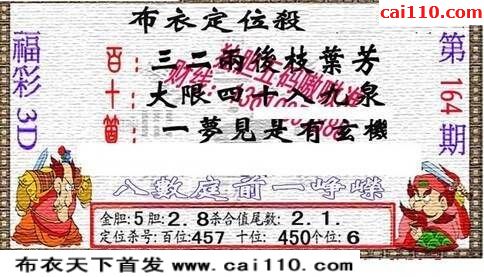 cai110.com
布衣定位殺
福彩3D
第164期
百:三二兩後枝葉芳
十:大限四十入九泉
箇:一夢見是有玄機
八數庭前一崢嶸
金胆:5胆:2.8杀合值尾数:2.1.
定位杀号:百位:457 十位:450个位:6
布衣天下首发 www.cai110.com